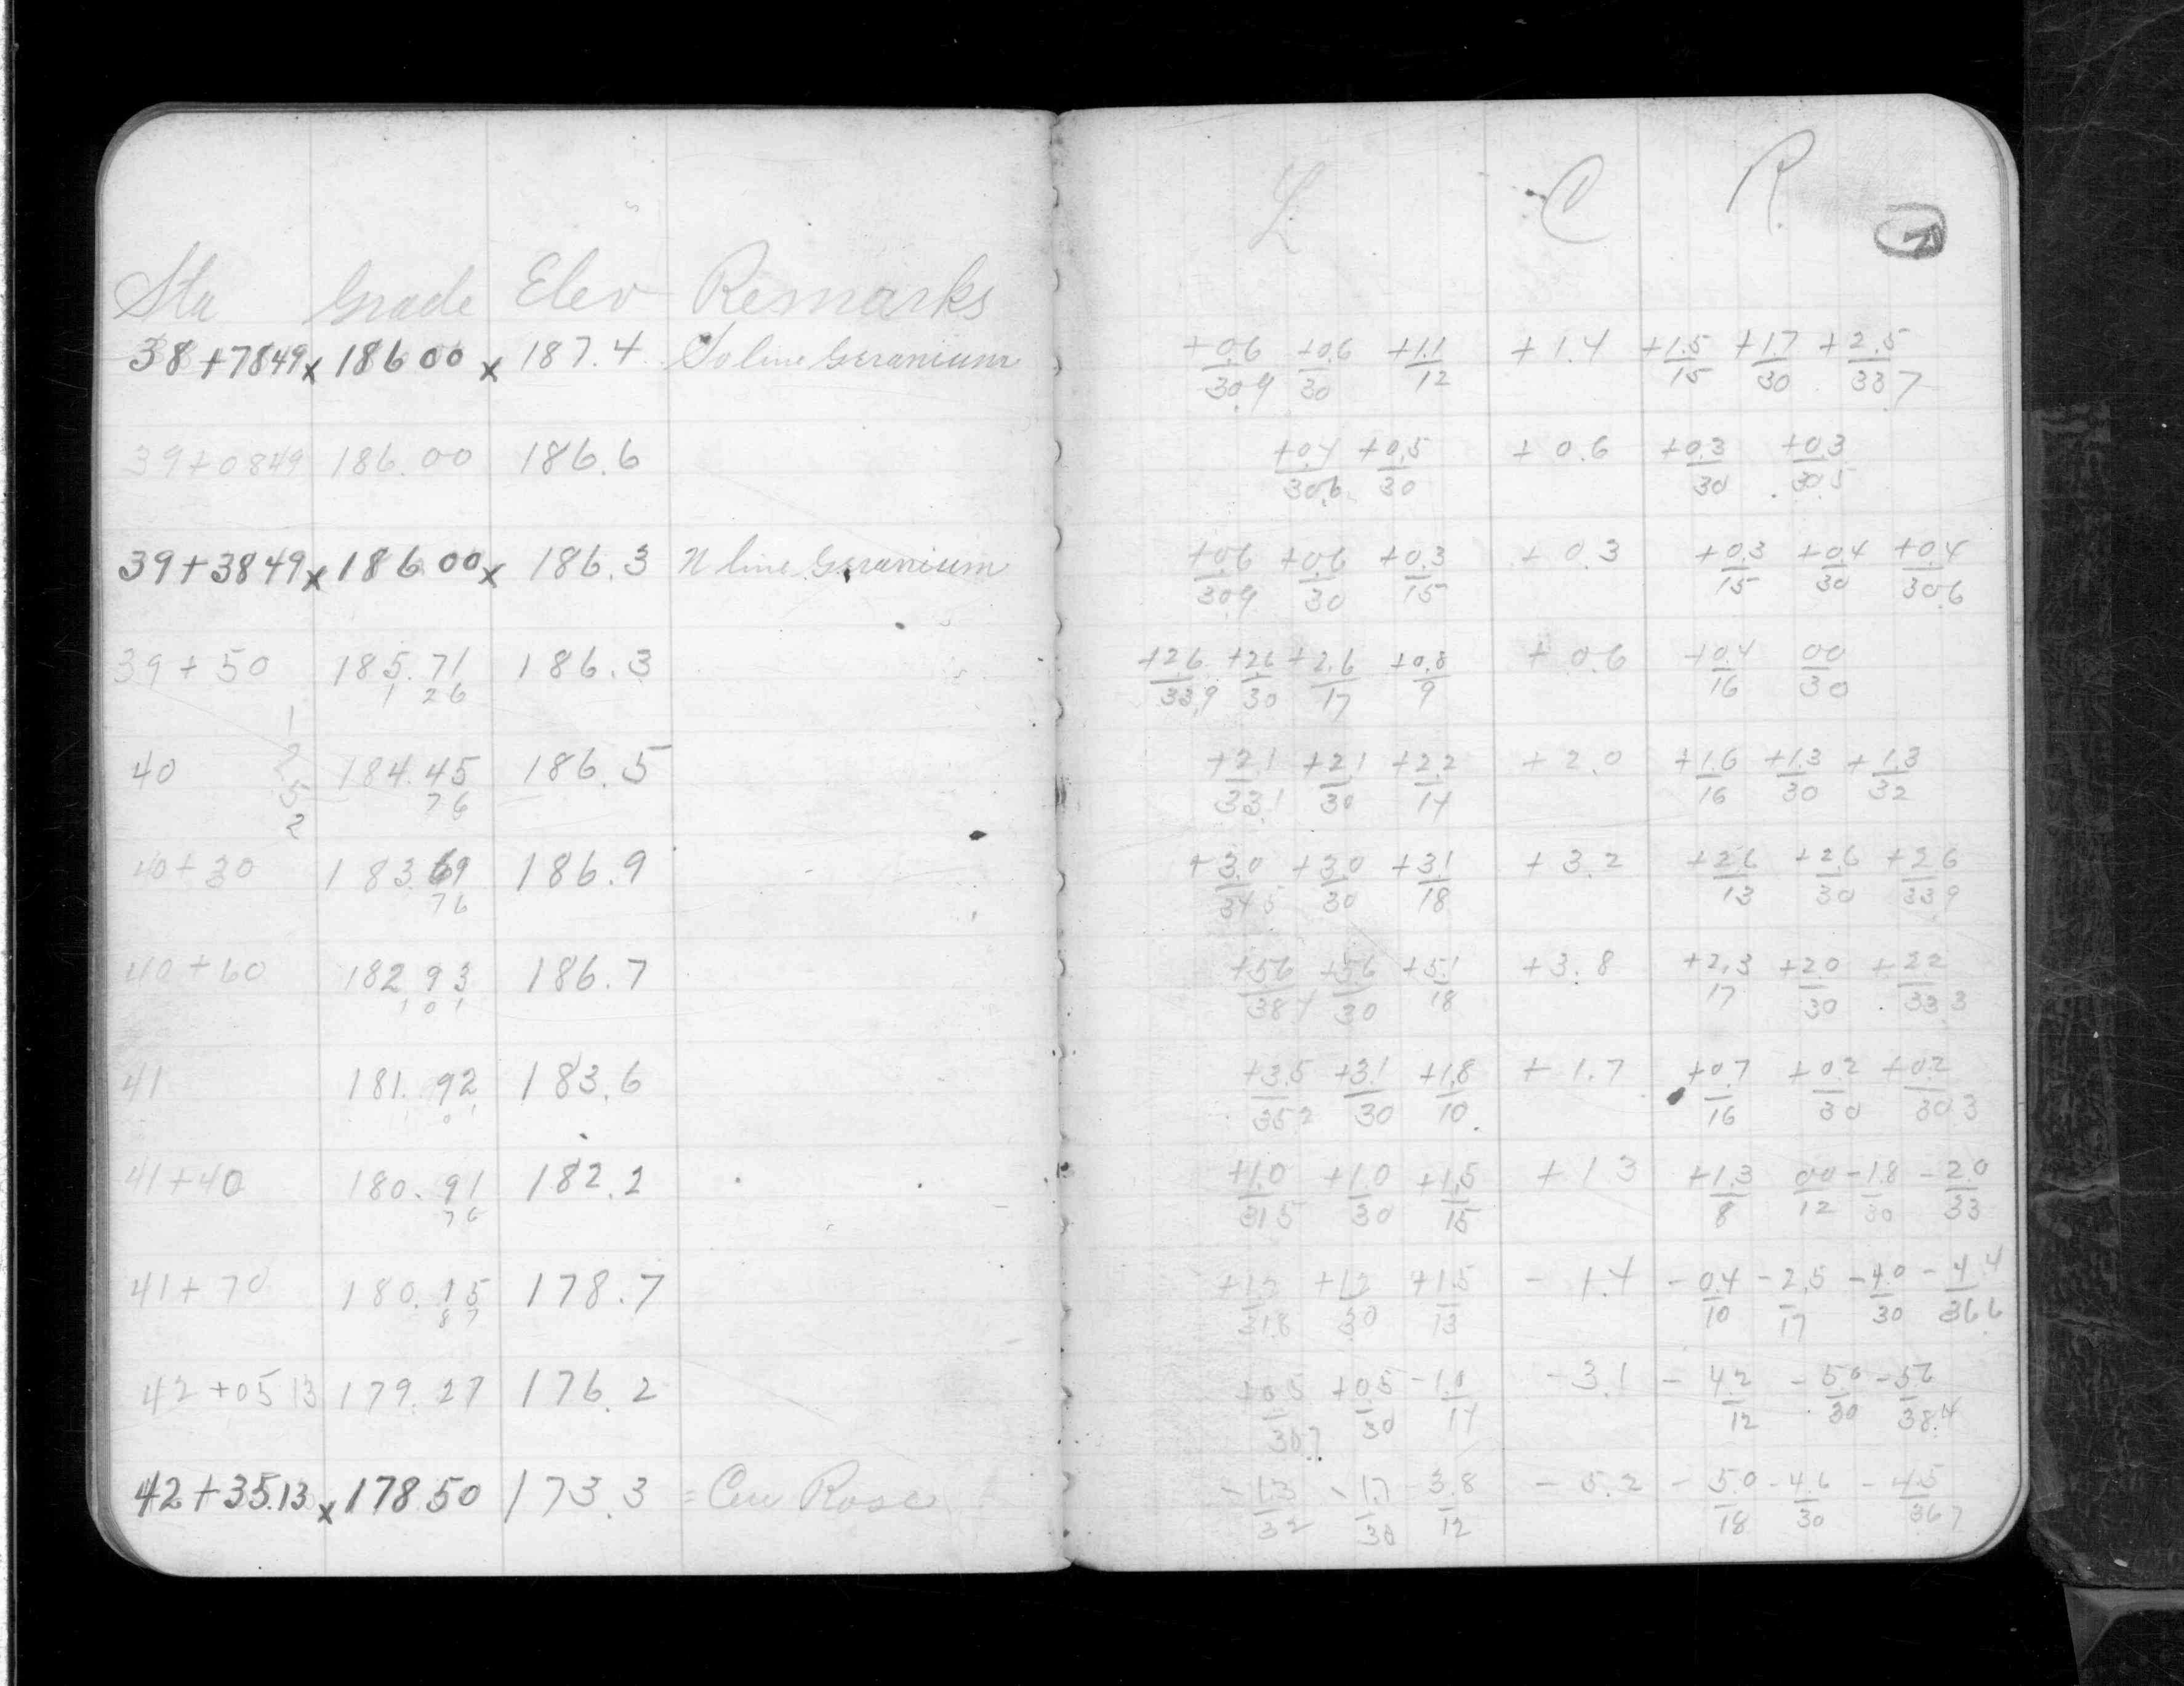 Sta Grade Elev Remarks
38+7849 x 186 00 x 187.4 So line Geranium
39+0849 186.00 186.6
39+3849 x 186 00 x 186.3 N line Geranium
39+50 185.71 186.3
1 26
1
2
5
2
40 184.45 186.5
76
40+30 183.69 186.9
76
40+60 182.93 186.7
1 0 1
41 181.92 183.6
1 0 1
41+40 180.91 182.2
76
41+70 180.15 178.7
87
42+05 13 179.27 176.2
42+35.13 x 178 50 173.3 = Cen Rose
L C R
7
+0.6 +0.6 +1.1 +1.4 +1.5 +1.7 +2.5
30.9 30 12 15 30 33.7
+0.4 +0.5 +0.6 +0.3 +0.3
30.6 30 30 30.5
+0.6 +0.6 +0.3 +0.3 +0.3 +0.4 +0.4
30.9 30 15 15 30 30.6
+2.6 +2.6 +2.6 +0.8 +0.6 +0.4 00
33.9 30 17 9 16 30
+2.1 +2.1 +2.2 +2.0 +1.6 +1.3 +1.3
33.1 30 14 16 30 32
+3.0 +3.0 +3.1 +3.2 +2.6 +2.6 +2.6
34 5 30 18 13 30 33 9
+5.6 +5.6 +5.1 +3.8 +2.3 +2.0 +2.2
38 4 30 18 17 30 33 3
+3.5 +3.1 +1.8 +1.7 +0.7 +0.2 +0.2
35 2 30 10 16 30 30 3
+1.0 +1.0 +1.5 +1.3 +1.3 00 -1.8 -2.0
31 5 30 15 8 12 30 33
+1.2 +1.2 +1.5 -1.4 -0.4 -2.5 -4.0 -4.4
31.8 30 13 10 17 30 36 6
+0.5 +0.5 -1.0 -3.1 -4.2 -5.6 -5.6
30.7 30 14 12 30 38.4
-1.3 -1.7 -3.8 -5.2 -5.0 -4.6 -4.5
32 30 12 18 30 36 7